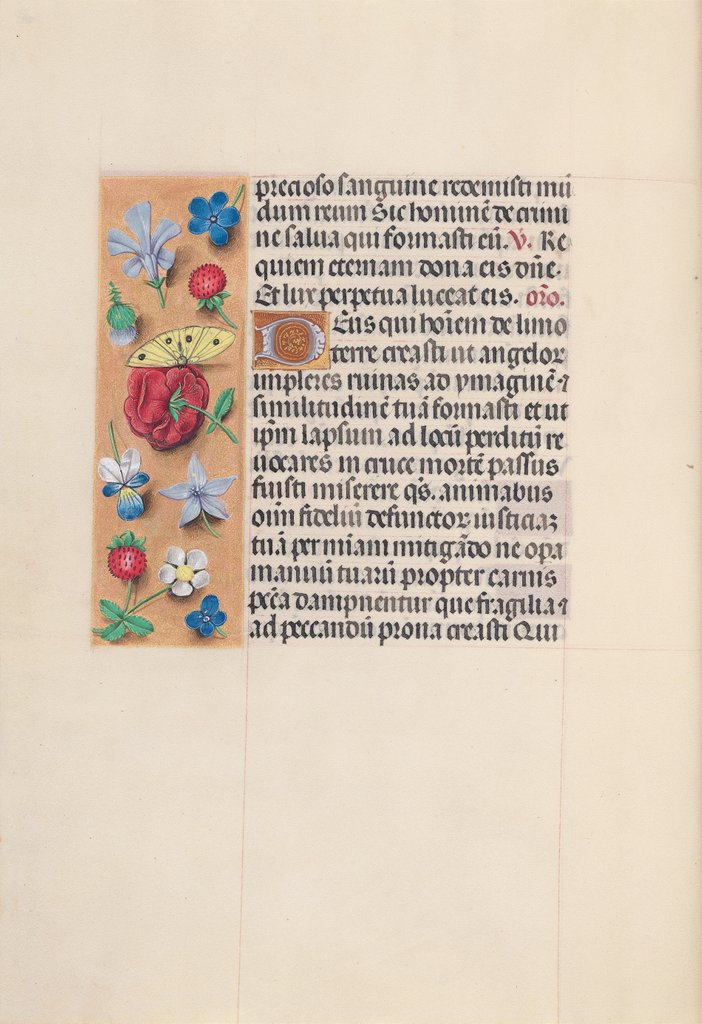 precioso sanguine redemisti mū
dum reum Sic hominē de crimi
ne salva qui formasti eū. V. Re
quiem eternam dona eis dn̄e.
Et lux perpetua luceat eis. or̄o.
Deus qui hoīem de limo
terre creasti ut angelor
impleres ruinas ad ymaginē ⁊
similitudinē tuā formasti et ut
ip̄m lapsum ad locū perditū re
vocares in cruce mortē passus
fuisti miserere q̄s. animabus
oīm fideliū defunctoꝝ iusticiaꝫ
tuā per miam mitigādo ne opa
manuū tuarū propter carnis
pc̄ca dampnentur que fragilia ⁊
ad peccandū prona creasti Qui